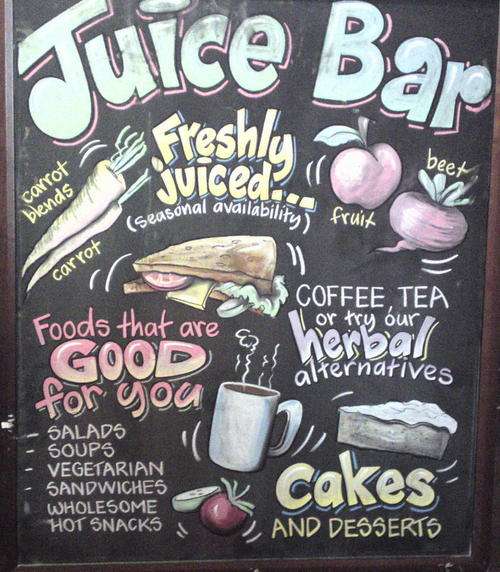 Juice Bar
Freshly
juiced...
(seasonal availability)
carrot
blends
carrot
beet
fruit
COFFEE, TEA
or try our
herbal
alternatives
Foods that are
GOOD
for you
- SALADS
- SOUPS
- VEGETARIAN
- SANDWICHES
- WHOLESOME
HOT SNACKS
Cakes
AND DESSERTS